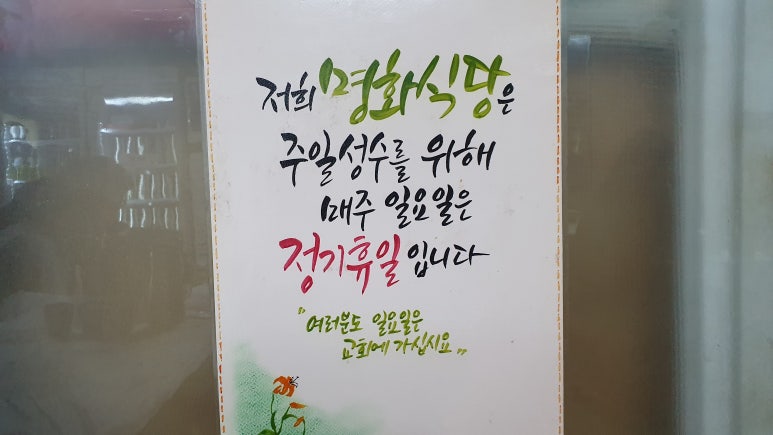 저희 명화식당은
주일성수를 위해
매주 일요일은
정기휴일입니다
"여러분도 일요일은
교회에 가십시요"